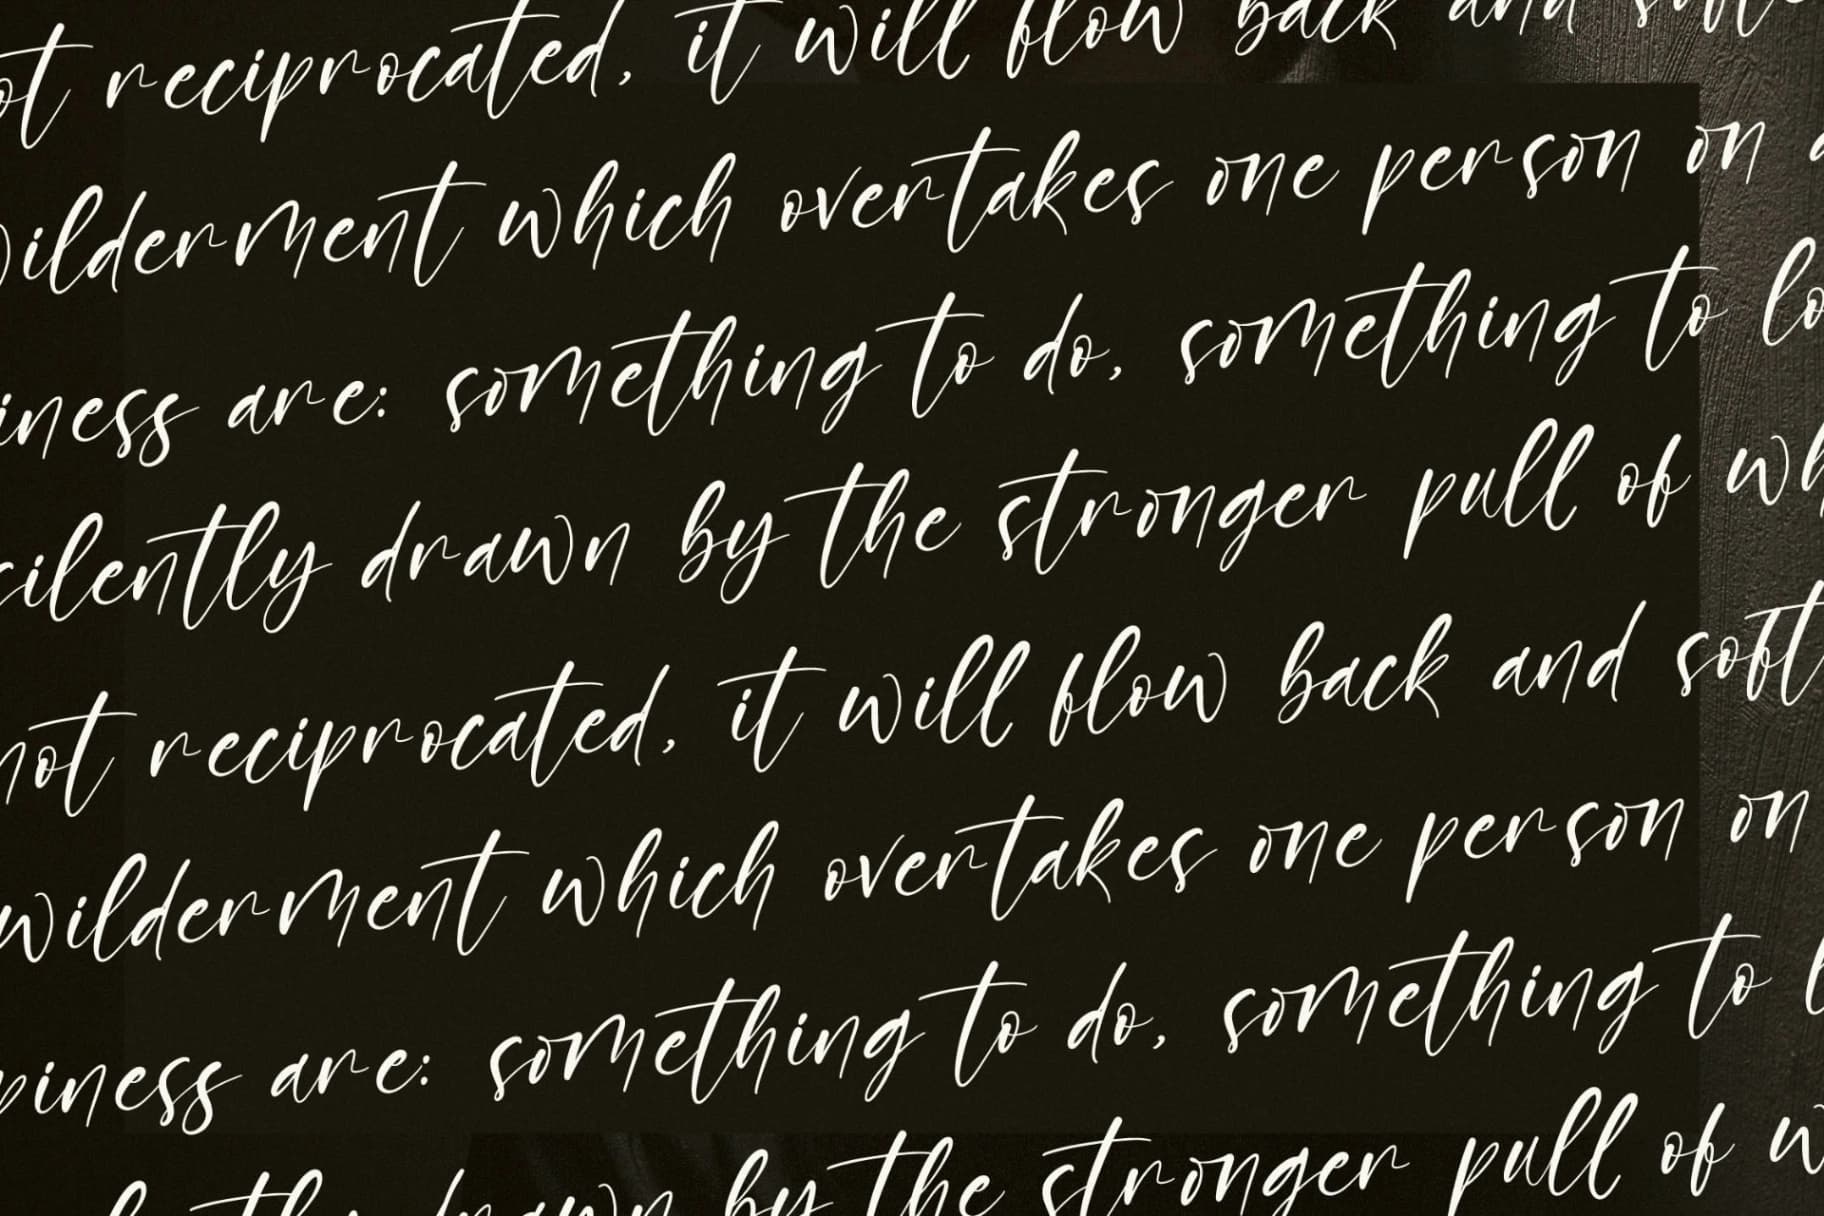 not reciprocated, it will flow back and soft
wilderment which overtakes one person on
iness are: something to do, something to lo
silently drawn by the stronger pull of wh
not reciprocated, it will flow back and soft
wilderment which overtakes one person on
piness are: something to do, something to l
by the stronger pull of w